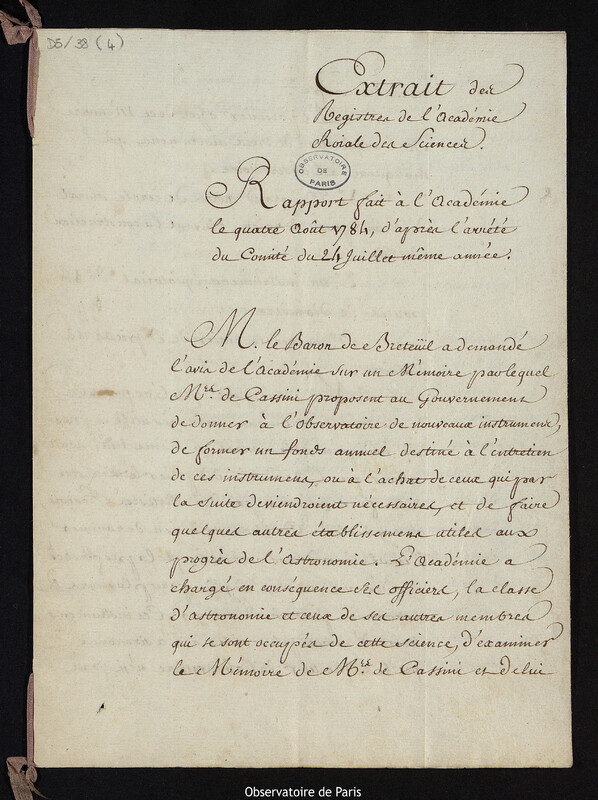 D5/38 (4)
Extrait des
Registres de l'Académie
Roiale des Sciences.
OBSERVATOIRE
DE
PARIS
Rapport fait à l'Académie
le quatre Août 1784, d'après l'arrêté
du Comité du 24 Juillet même année.
M. le Baron de Breteüil a demandé
l'avis de l'Académie sur un Mémoire par lequel
Mrs. de Cassini proposent au Gouvernement
de donner à l'Observatoire de nouveaux instrumens,
de former un fonds annuel destiné à l'entretien
de ces instrumens, ou à l'achat de ceux qui par
la suite deviendroient nécessaires, et de faire
quelques autres établissemens utiles aux
progrès de l'Astronomie. L'Académie a
chargé en conséquence ses officiers, la classe
d'astronomie et ceux de ses autres membres
qui se sont occupés de cette science, d'examiner
le Mémoire de Mrs. de Cassini et de lui
Observatoire de Paris